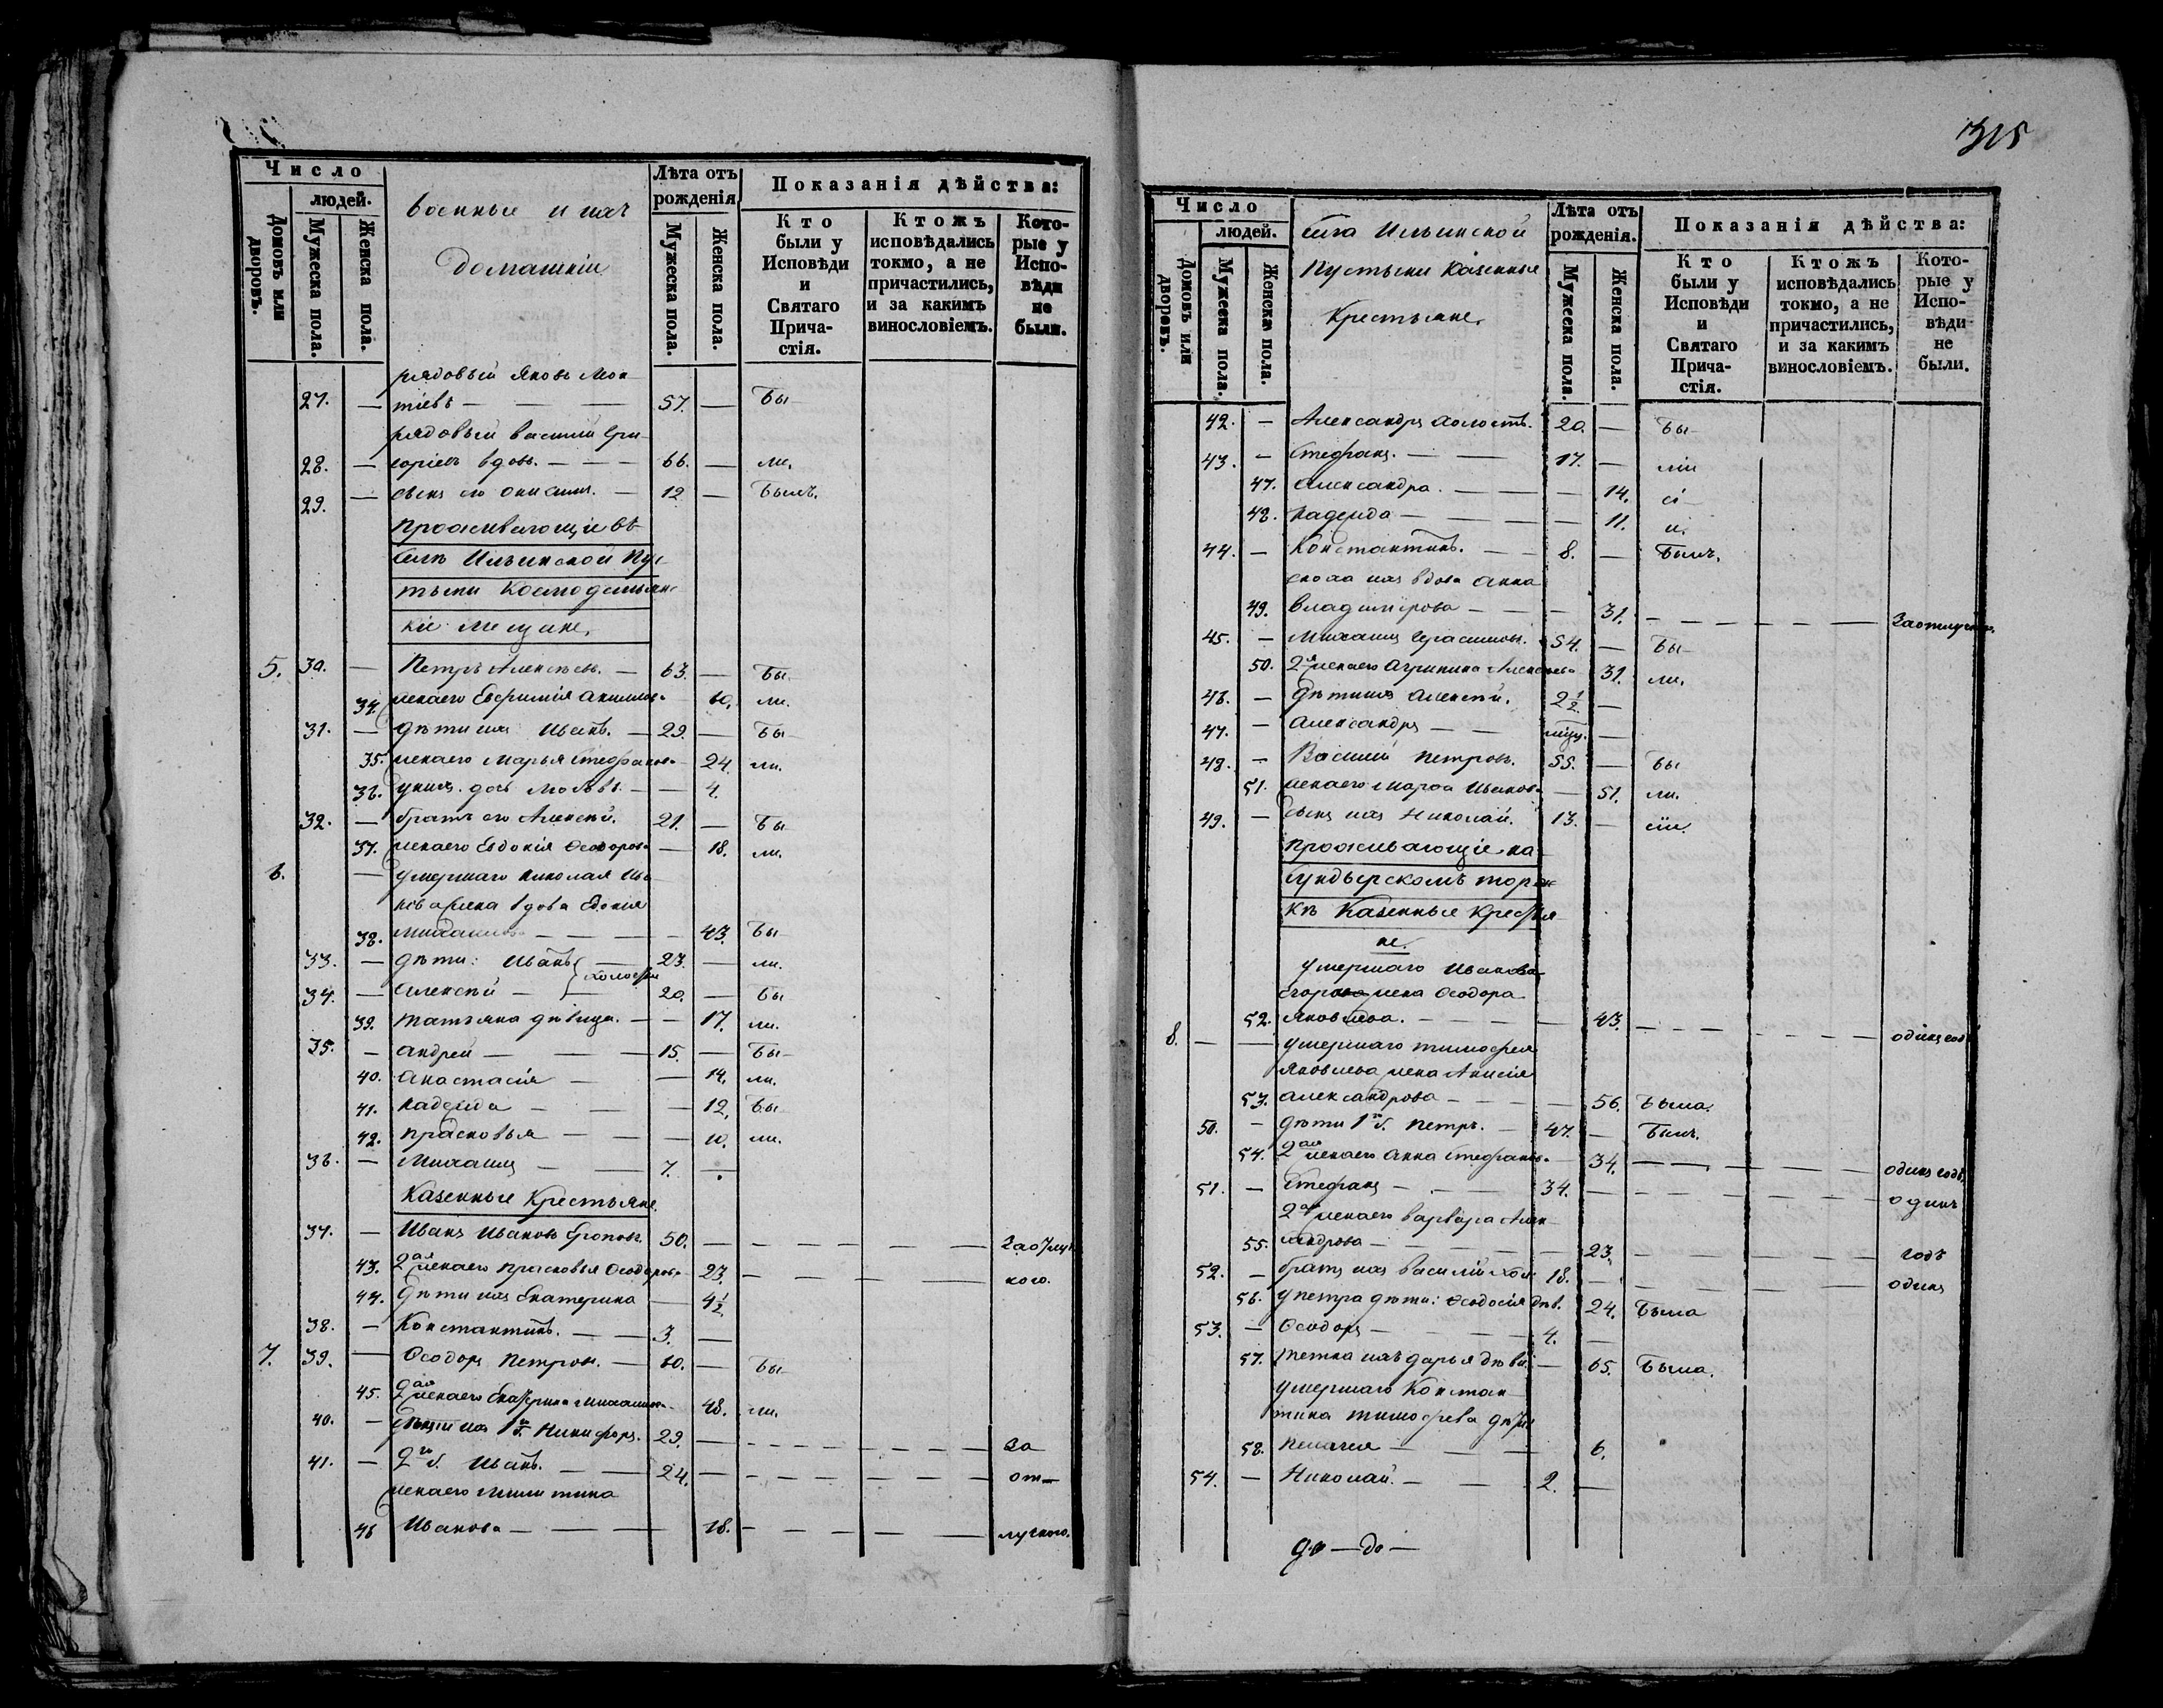 Число
людей.
Домовъ или дворовъ.
Мужеска пола.
Женска пола.
Военные и ихъ
домашніи
Лѣта отъ рожденія
Мужеска пола.
Женска пола.
Показанія дѣйства:
Кто были у Исповѣди и Святаго Причастія.
Ктожъ исповѣдались токмо, а не причастились, и за какимъ винословіемъ.
Которые у Исповѣди не были.
рядовый Яковъ
27. — тіевъ — — — 57. — Бы
рядовый Василій Гри-
28. — горіевъ вдовъ. — — — 66. — ли.
29. — сынъ его — 12 — Былъ.
Проживающіе въ
селѣ Ильинской Пус
тыни Космодемьянс
кіе мещане.
5. 30. — Петръ Алексѣевъ. — 63. — Бы
34. жена его Евфимія Акимова 60. ли.
31. — дѣти ихъ Иванъ. — 29. — Бы
35. жена его Марья Стефанова 24. ли.
36. у нихъ дочь — — 4.
32. — братъ его Алексѣй. 21. — Бы
37. жена его Евдокія Ѳеодорова — 18. ли.
6. — умершаго Николая Ива
нова жена вдова Евдокія
38. Михайлова — — — — 43. Бы
33. — дѣти: Иванъ — 23. — ли.
холосты
34. — Алексѣй — — 20. — Бы
39. Татьяна дѣвица. — — 17. ли.
35. — Андрей — — — 15. — Бы
40. Анастасія — — 14. ли.
41. Надежда — — — 12. Бы
42. Прасковья — — — 10. ли.
36. — Михаилъ — — 7. —
Казенные Крестьяне.
37. — Иванъ Ивановъ 50. — — — — — Заотлуч
43. 2ая жена его Прасковья Ѳеодорова 23. — — — — кою.
44. Дѣти ихъ Екатерина — 4½
38. — Константинъ. — — 3. —
7. 39. — Ѳеодоръ Петровъ. — 60. — Бы
45. 2ая жена его Екатерина Михайлова 48. ли.
40. — дѣти ихъ 1го б. Никифоръ. 29. — — — — — За
41. — 2го б. Иванъ. — — 24. — — — — — от—
жена его
46 Иванова — — — 18. — — — — — лучкою.
315
Число
людей.
Домовъ или дворовъ.
Мужеска пола.
Женска пола.
села Ильинской
Пустыни Казенные
Крестьяне.
Лѣта отъ рожденія.
Мужеска пола.
Женска пола.
Показанія дѣйства:
Кто были у Исповѣди и Святаго Причастія.
Ктожъ исповѣдались токмо, а не причастились, и за какимъ винословіемъ.
Которые у Исповѣди не были.
42. — Александръ холостъ. 20. — Бы
43. — Стефанъ. — — 17. — ли
47. Александра. — — — 14. сі
48. Надежда — — — — 11. и.
44. — Константинъ. — — 8. — Былъ.
сноха ихъ вдова Анна
49. Владимірова — — — 31. — — — — — — Заотлучкою.
45. — Михаилъ Герасимовъ. 54. — Бы
50. 2я жена его Агрипина Алексѣева 31. ли.
46. — Дѣти ихъ Алексѣй. 2½. —
47. — Александръ — — —
48. — Василій Петровъ. 55. — Бы
51. жена его Марѳа Иванова — 51. ли.
49. — сынъ ихъ Николай. 13. —
Проживающіе на
Сундырскомъ тор
кѣ Казенные Крестья
не.
умершаго Иванова
Егорова жена Ѳеодора
52. Яковлева. — — — — — 43. — — — — — — одинъ годъ
8. — — умершаго Тимофея
Яковлева жена Анисія
53. Александрова — — — — 56. Была.
50. — дѣти 1го б. Петръ. — 47. — Былъ.
54. 2ая жена его Анна Стефанова — 34. — — — — — одинъ годъ.
51. — Стефанъ — — — 34. — — — — — — одинъ
2ая жена его Варвара Алек
55. сандрова — — — — — 23. — — — — — годъ
52. — братъ ихъ Василій хол. 18. — — — — одинъ
56. у Петра дѣти: Ѳеодосія дѣв. 24. Была
53. — Ѳеодоръ — — — — 4. —
57. тетка ихъ Дарья дѣви. — 65. Была.
умершаго Констан
тина Тимофеева дѣти
58. Пелагея — — — 6.
54. — Николай. — — 2. —